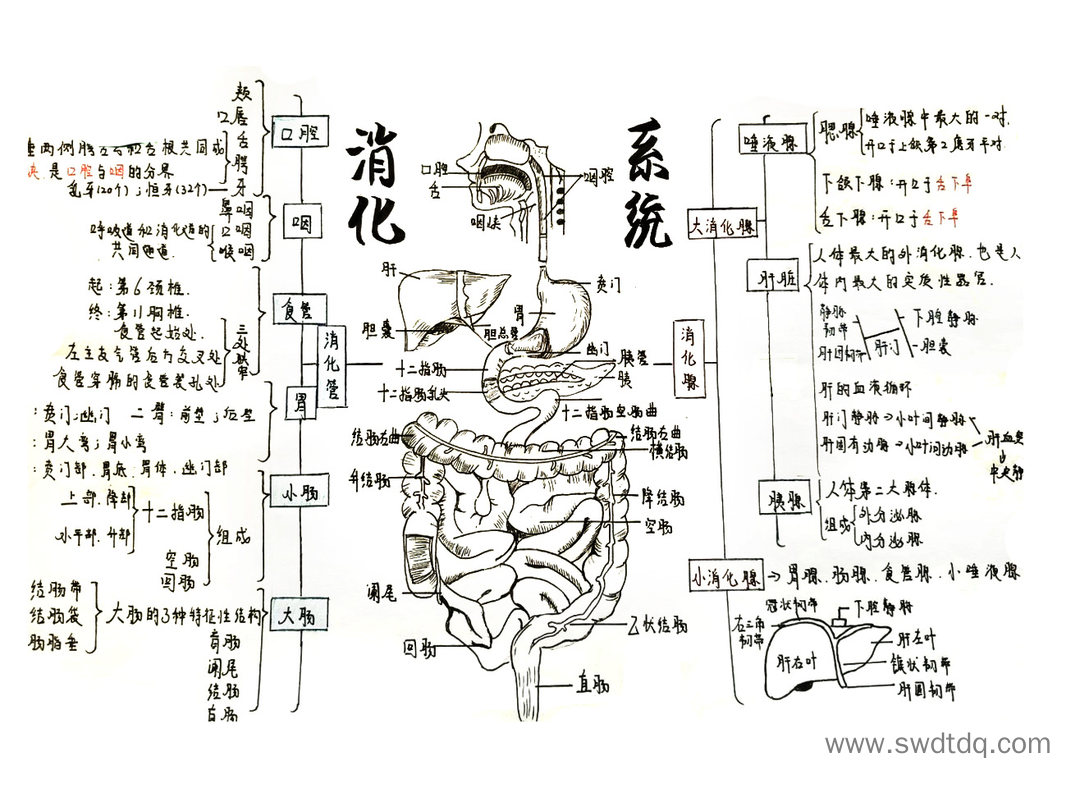 消化
系统
口腔
颊
口唇
舌
腭
牙
乳牙(20个)；恒牙(32个)
是口腔与咽的分界
咽
鼻咽
口咽
喉咽
呼吸道和消化道的
共同通道.
食管
起：第6颈椎.
终：第11胸椎.
食管起始处.
左主支气管后方交叉处
食管穿膈的食管裂孔处
三处狭窄
消化管
胃
：贲门；幽门 二壁：前壁；后壁
：胃大弯；胃小弯
：贲门部.胃底.胃体.幽门部
小肠
上部.降部
水平部.升部
十二指肠
空肠
回肠
组成
大肠
结肠带
结肠袋
肠脂垂
大肠的3种特征性结构
盲肠
阑尾
结肠
直肠
口腔
舌
咽峡
咽腔
肝
胆囊
胆总管
胃
贲门
幽门
胰管
胰
十二指肠
十二指肠乳头
十二指肠空肠曲
结肠右曲
结肠左曲
横结肠
升结肠
降结肠
空肠
阑尾
乙状结肠
回肠
直肠
消化腺
大消化腺
唾液腺
腮腺
唾液腺中最大的一对.
开口于上颌第2磨牙平对.
下颌下腺：开口于舌下阜
舌下腺：开口于舌下阜
肝脏
人体最大的外消化腺.也是人
体内最大的实质性器官.
静脉韧带
下腔静脉
肝圆韧带
肝门
胆囊
肝的血液循环
肝门静脉→小叶间静脉
肝固有动脉→小叶间动脉
肝血窦
↓
中央静
胰腺
人体第二大腺体.
组成
外分泌腺
内分泌腺
小消化腺→胃腺.肠腺.食管腺.小唾液腺
冠状韧带
下腔静脉
右三角韧带
肝右叶
肝左叶
镰状韧带
肝圆韧带
www.swdtdq.com